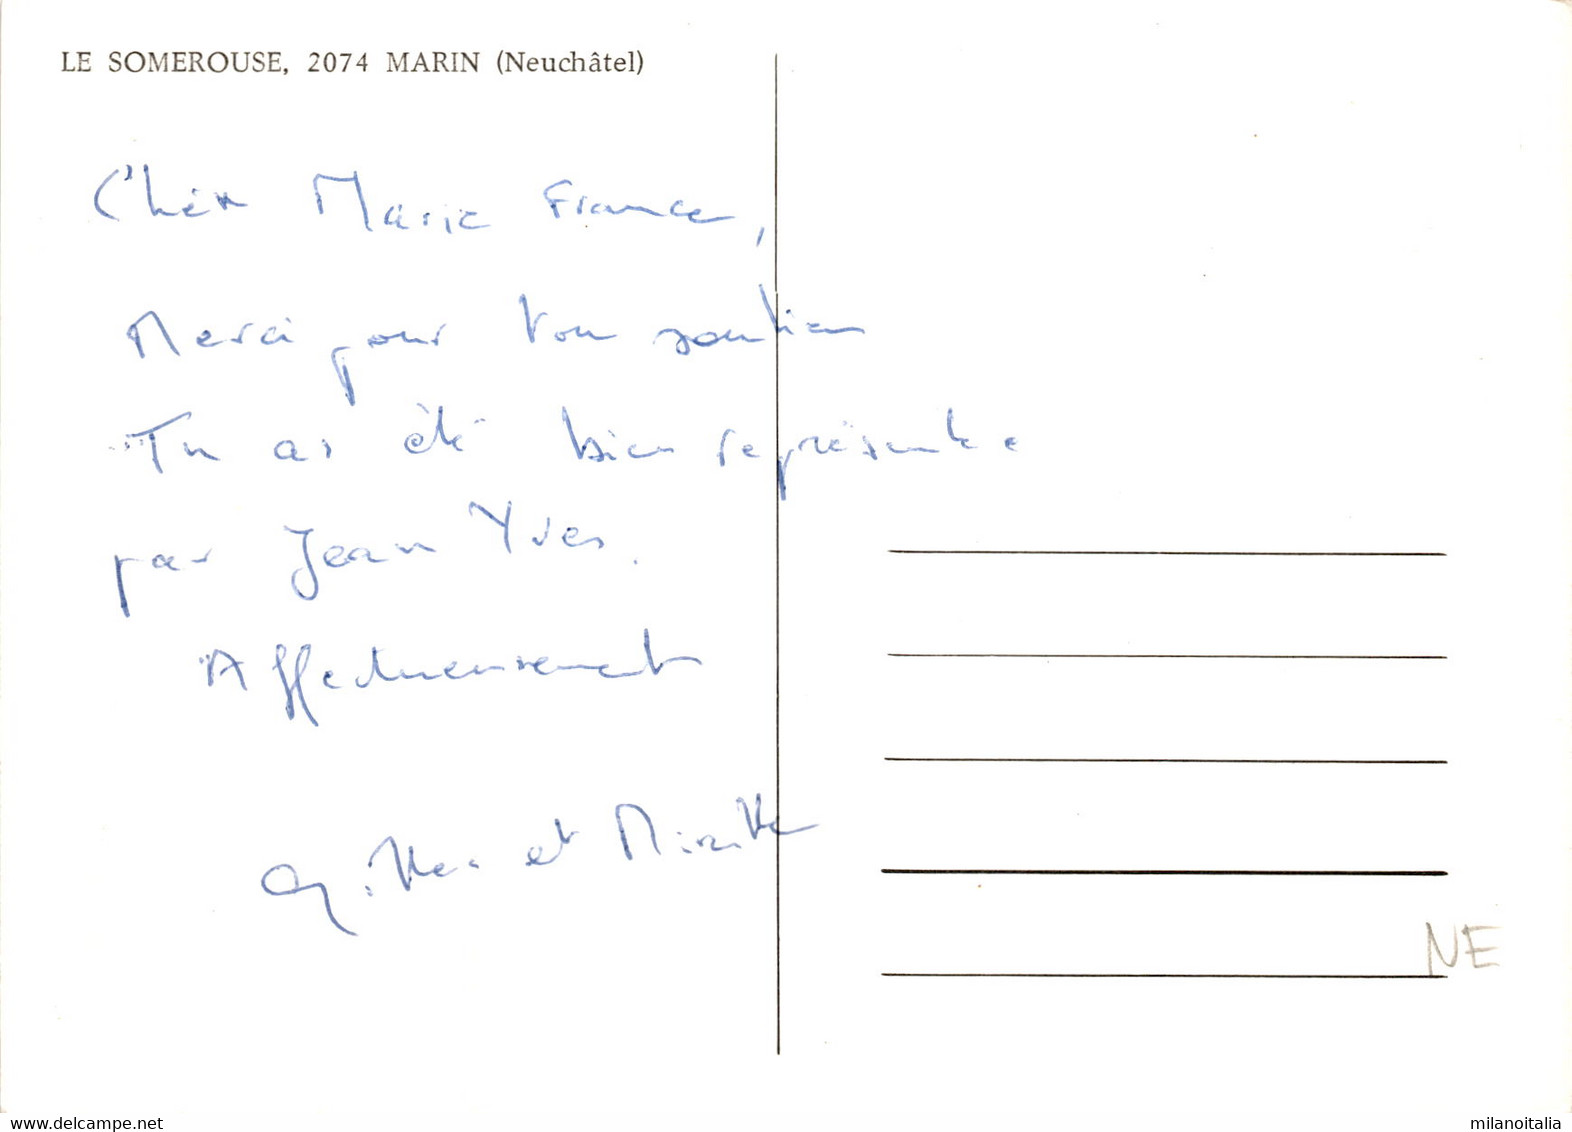 LE SOMEROUSE, 2074 MARIN (Neuchâtel)
Chère Marie France,
Merci pour ton soutien
Tu as été bien représentée
par Jean Yves.
Affectueusement
Gilles et Mireille
NE
www.delcampe.net
milanoitalia